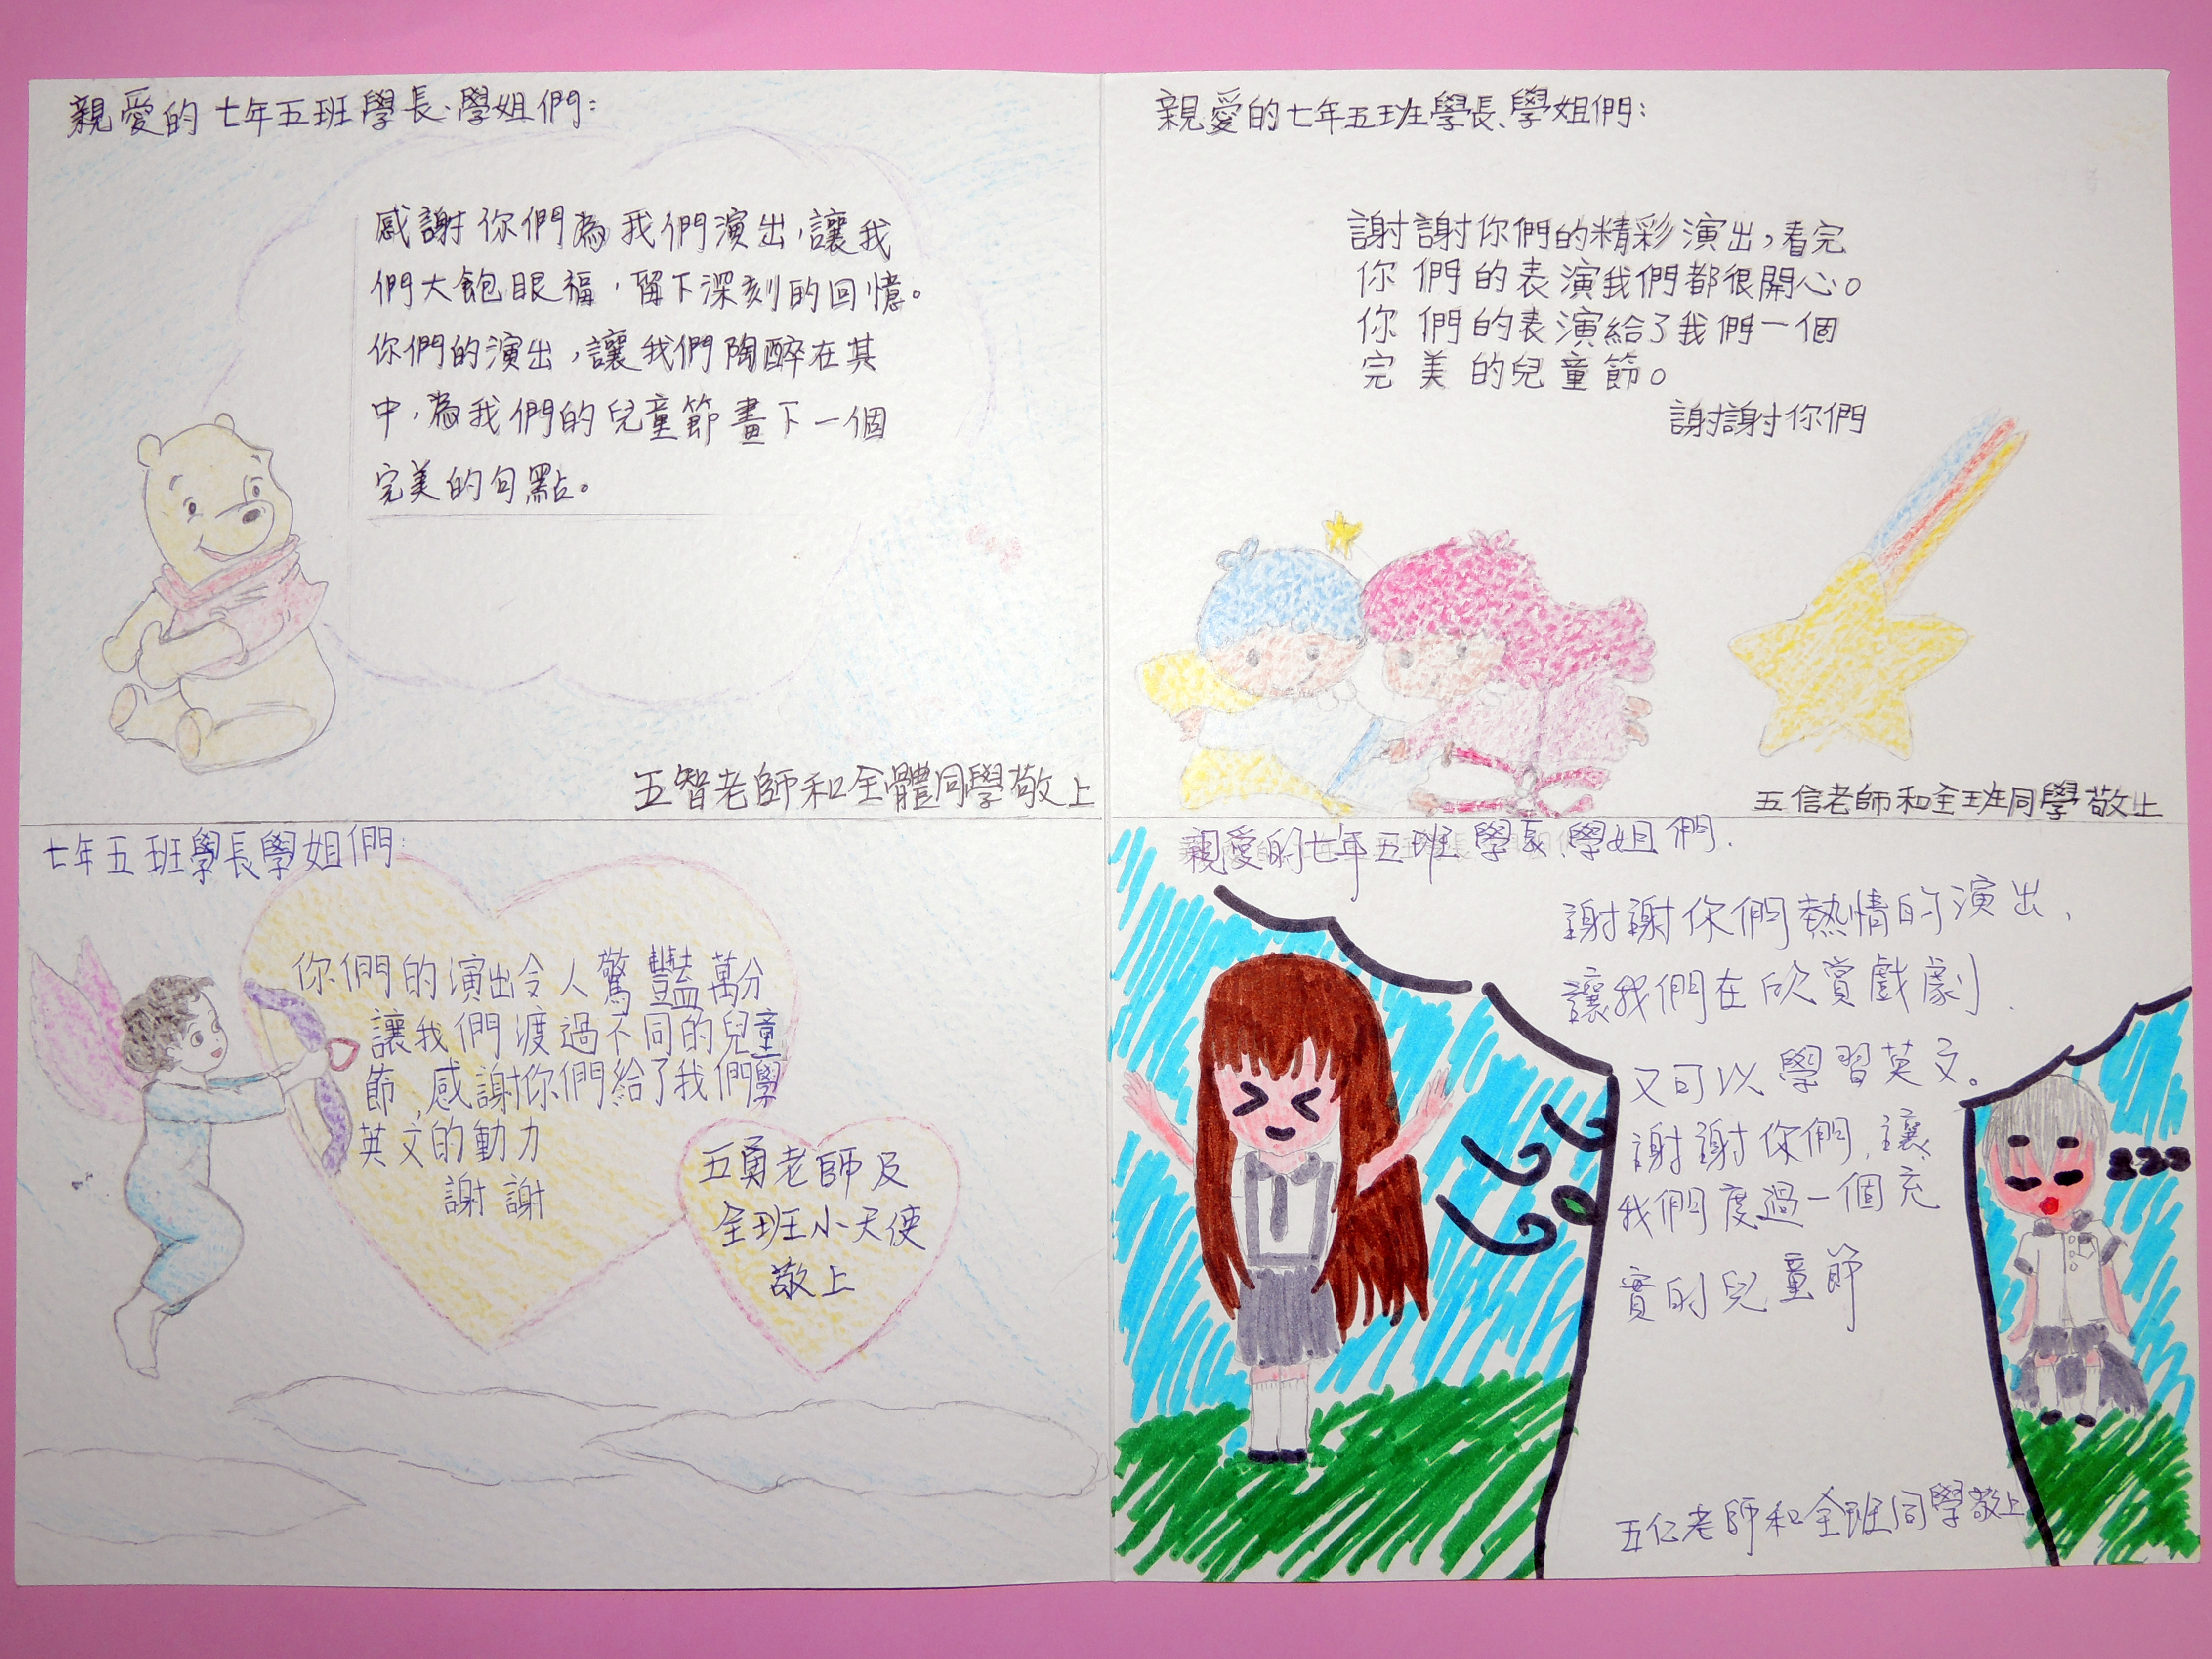 親愛的七年五班學長、學姐們：
感謝你們為我們演出，讓我
們大飽眼福，留下深刻的回憶。
你們的演出，讓我們陶醉在其
中，為我們的兒童節畫下一個
完美的句點。
五智老師和全體同學敬上
親愛的七年五班學長、學姐們：
謝謝你們的精彩演出，看完
你們的表演我們都很開心。
你們的表演給了我們一個
完美的兒童節。
謝謝你們
五信老師和全班同學敬上
七年五班學長學姐們：
你們的演出令人驚豔萬分
讓我們渡過不同的兒童
節，感謝你們給了我們學
英文的動力
謝謝
五勇老師及
全班小天使
敬上
親愛的七年五班學長、學姐們.
謝謝你們熱情的演出、
讓我們在欣賞戲劇.
又可以學習英文。
謝謝你們,讓
我們度過一個充
實的兒童節
五仁老師和全班同學敬上